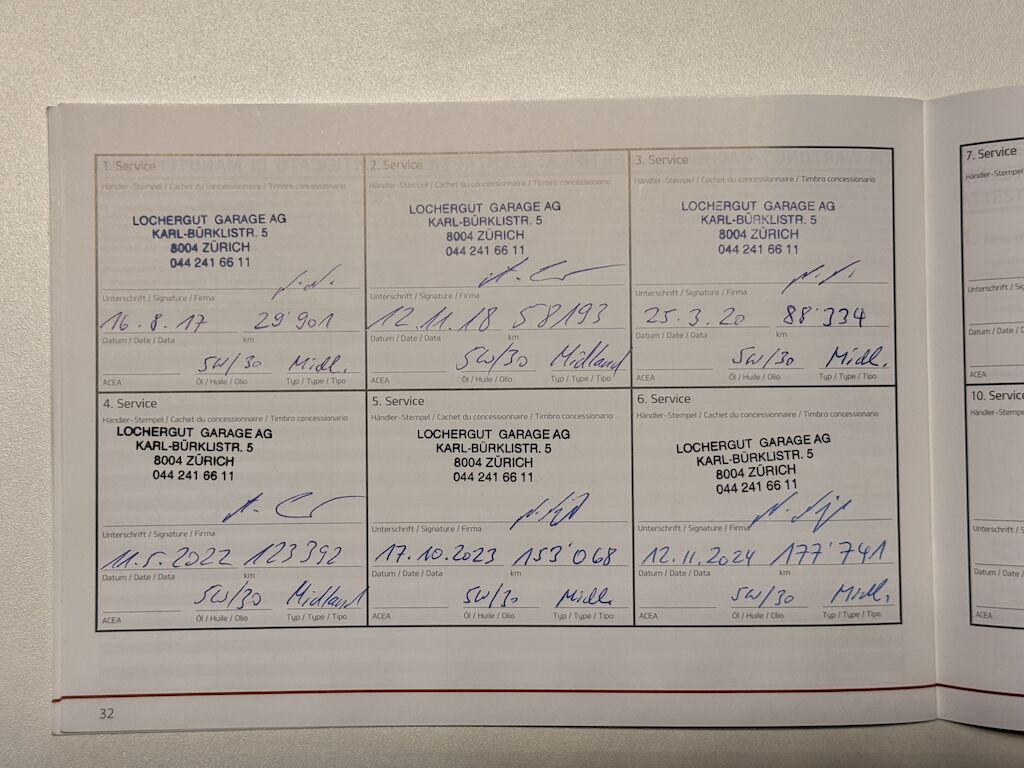 1. Service
Händler-Stempel / Cachet du concessionnaire / Timbro concessionario
LOCHERGUT GARAGE AG
KARL-BÜRKLISTR. 5
8004 ZÜRICH
044 241 66 11
Unterschrift / Signature / Firma
16.8.17 29'901
Datum / Date / Data km
5W/30 Midl.
ACEA Öl / Huile / Olio Typ / Type / Tipo
2. Service
Händler-Stempel / Cachet du concessionnaire / Timbro concessionario
LOCHERGUT GARAGE AG
KARL-BÜRKLISTR. 5
8004 ZÜRICH
044 241 66 11
Unterschrift / Signature / Firma
12.11.18 58193
Datum / Date / Data km
5W/30 Midland
ACEA Öl / Huile / Olio Typ / Type / Tipo
3. Service
Händler-Stempel / Cachet du concessionnaire / Timbro concessionario
LOCHERGUT GARAGE AG
KARL-BÜRKLISTR. 5
8004 ZÜRICH
044 241 66 11
Unterschrift / Signature / Firma
25.3.20 88'334
Datum / Date / Data km
5W/30 Midl.
ACEA Öl / Huile / Olio Typ / Type / Tipo
4. Service
Händler-Stempel / Cachet du concessionnaire / Timbro concessionario
LOCHERGUT GARAGE AG
KARL-BÜRKLISTR. 5
8004 ZÜRICH
044 241 66 11
Unterschrift / Signature / Firma
11.5.2022 123392
Datum / Date / Data km
5W/30 Midland
ACEA Öl / Huile / Olio Typ / Type / Tipo
5. Service
Händler-Stempel / Cachet du concessionnaire / Timbro concessionario
LOCHERGUT GARAGE AG
KARL-BÜRKLISTR. 5
8004 ZÜRICH
044 241 66 11
Unterschrift / Signature / Firma
17.10.2023 153'068
Datum / Date / Data km
5W/30 Midl.
ACEA Öl / Huile / Olio Typ / Type / Tipo
6. Service
Händler-Stempel / Cachet du concessionnaire / Timbro concessionario
LOCHERGUT GARAGE AG
KARL-BÜRKLISTR. 5
8004 ZÜRICH
044 241 66 11
Unterschrift / Signature / Firma
12.11.2024 177'741
Datum / Date / Data km
5W/30 Midl.
ACEA Öl / Huile / Olio Typ / Type / Tipo
32
7. Service
Händler-Stempel
Unterschrift / S
Datum / Date / D
ACEA
10. Service
Händler-Stempel
Unterschrift / S
Datum / Date / D
ACEA